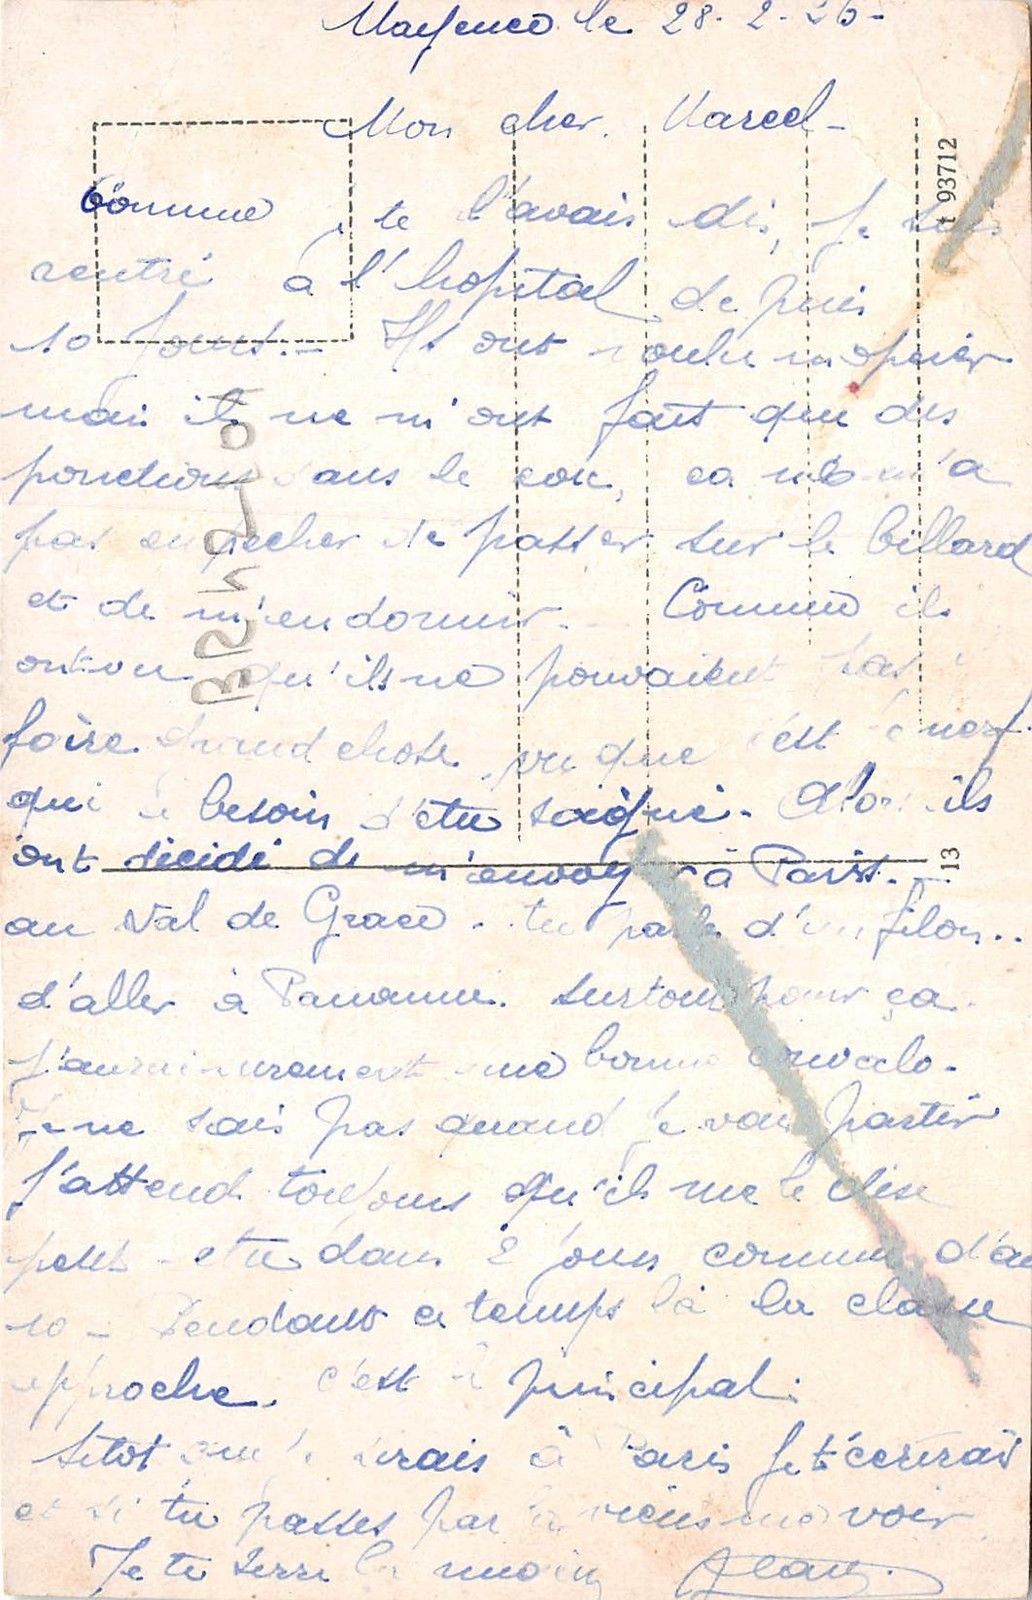 Mayence le 28-2-26-
Mon cher Marcel -
Comme je te l'avais dis, je suis
rentré à l'hopital depuis
10 jours. - Ils ont voulu m'opérer
mais ils ne m'ont fait que des
ponctions dans le cou, ca ne m'a
pas empecher de passer sur le billard
et de m'endormir. Comme ils
ont vu qu'ils ne pouvaient pas
faire grand chose vu que c'est le nerf
qui a besoin d'etre soigné. Alors ils
ont décidé de m'envoyer à Paris. -
au Val de Grace - tu parle d'un filon..
d'aller à Paname. surtout pour ça.
J'aurai surement une bonne convalo.
Je ne sais pas quand je vais partir
J'attend toujours qu'ils me le dise
peut-etre dans 2 jours comme dans
10 - Pendant ce temps là la classe
approche. c'est le principal.
Sitot que je serais à Paris je t'écrirais
et si tu passes par là viens me voir.
Je te serre la main
t 93712
13